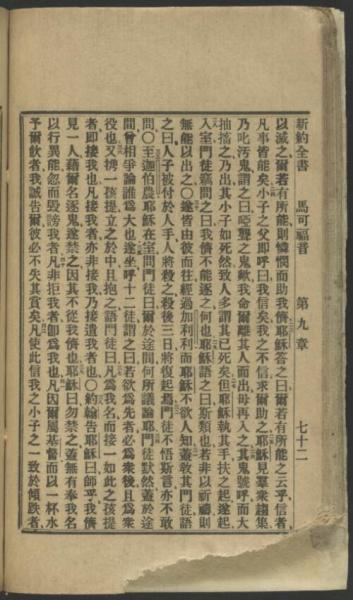 新約全書 馬可福音 第九章 七十二
以滅之爾若有所能則憐憫而助我儕耶穌答之曰爾若有所能之云乎信者
凡事皆能矣小子之父即呼曰我信矣我之不信求爾助之耶穌見羣衆趨集
乃叱汚鬼謂之曰啞聾之鬼歟我命爾離其人而出毋再入之其鬼號呼而大
抽搐之乃出其小子如死然致人多謂其已死矣但耶穌執其手扶之起遂起
入室門徒竊問之曰我儕不能逐之何也耶穌語之曰斯類也若非以祈禱則
無能以出之〇遂皆由彼而往經過加利利而耶穌不欲人知蓋敎其門徒語
之曰人子被付於人手人將殺之殺後三日將復起門徒不悟斯言亦不敢
問〇至迦伯農耶穌在室問門徒曰爾於途間何所議論耶門徒默然蓋於途
間曾相爭論誰爲大也遂坐呼十二徒謂之曰若欲爲先者必爲衆後且爲衆
役也又携一孩提立之於中且抱之語門徒曰凡爲我名而接一如此之孩提
者即接我也凡接我者亦非接我乃接遣我者也〇約翰告耶穌曰師乎我儕
見一人藉爾名逐鬼遂禁之因其不從我儕也耶穌曰勿禁之蓋無有奉我名
以行異能忽而毀謗我者凡非拒我者卽爲我也凡因爾屬基督而以一杯水
予爾飲者我誠告爾彼必不失其賞矣凡使此信我之小子之一致於傾跌者